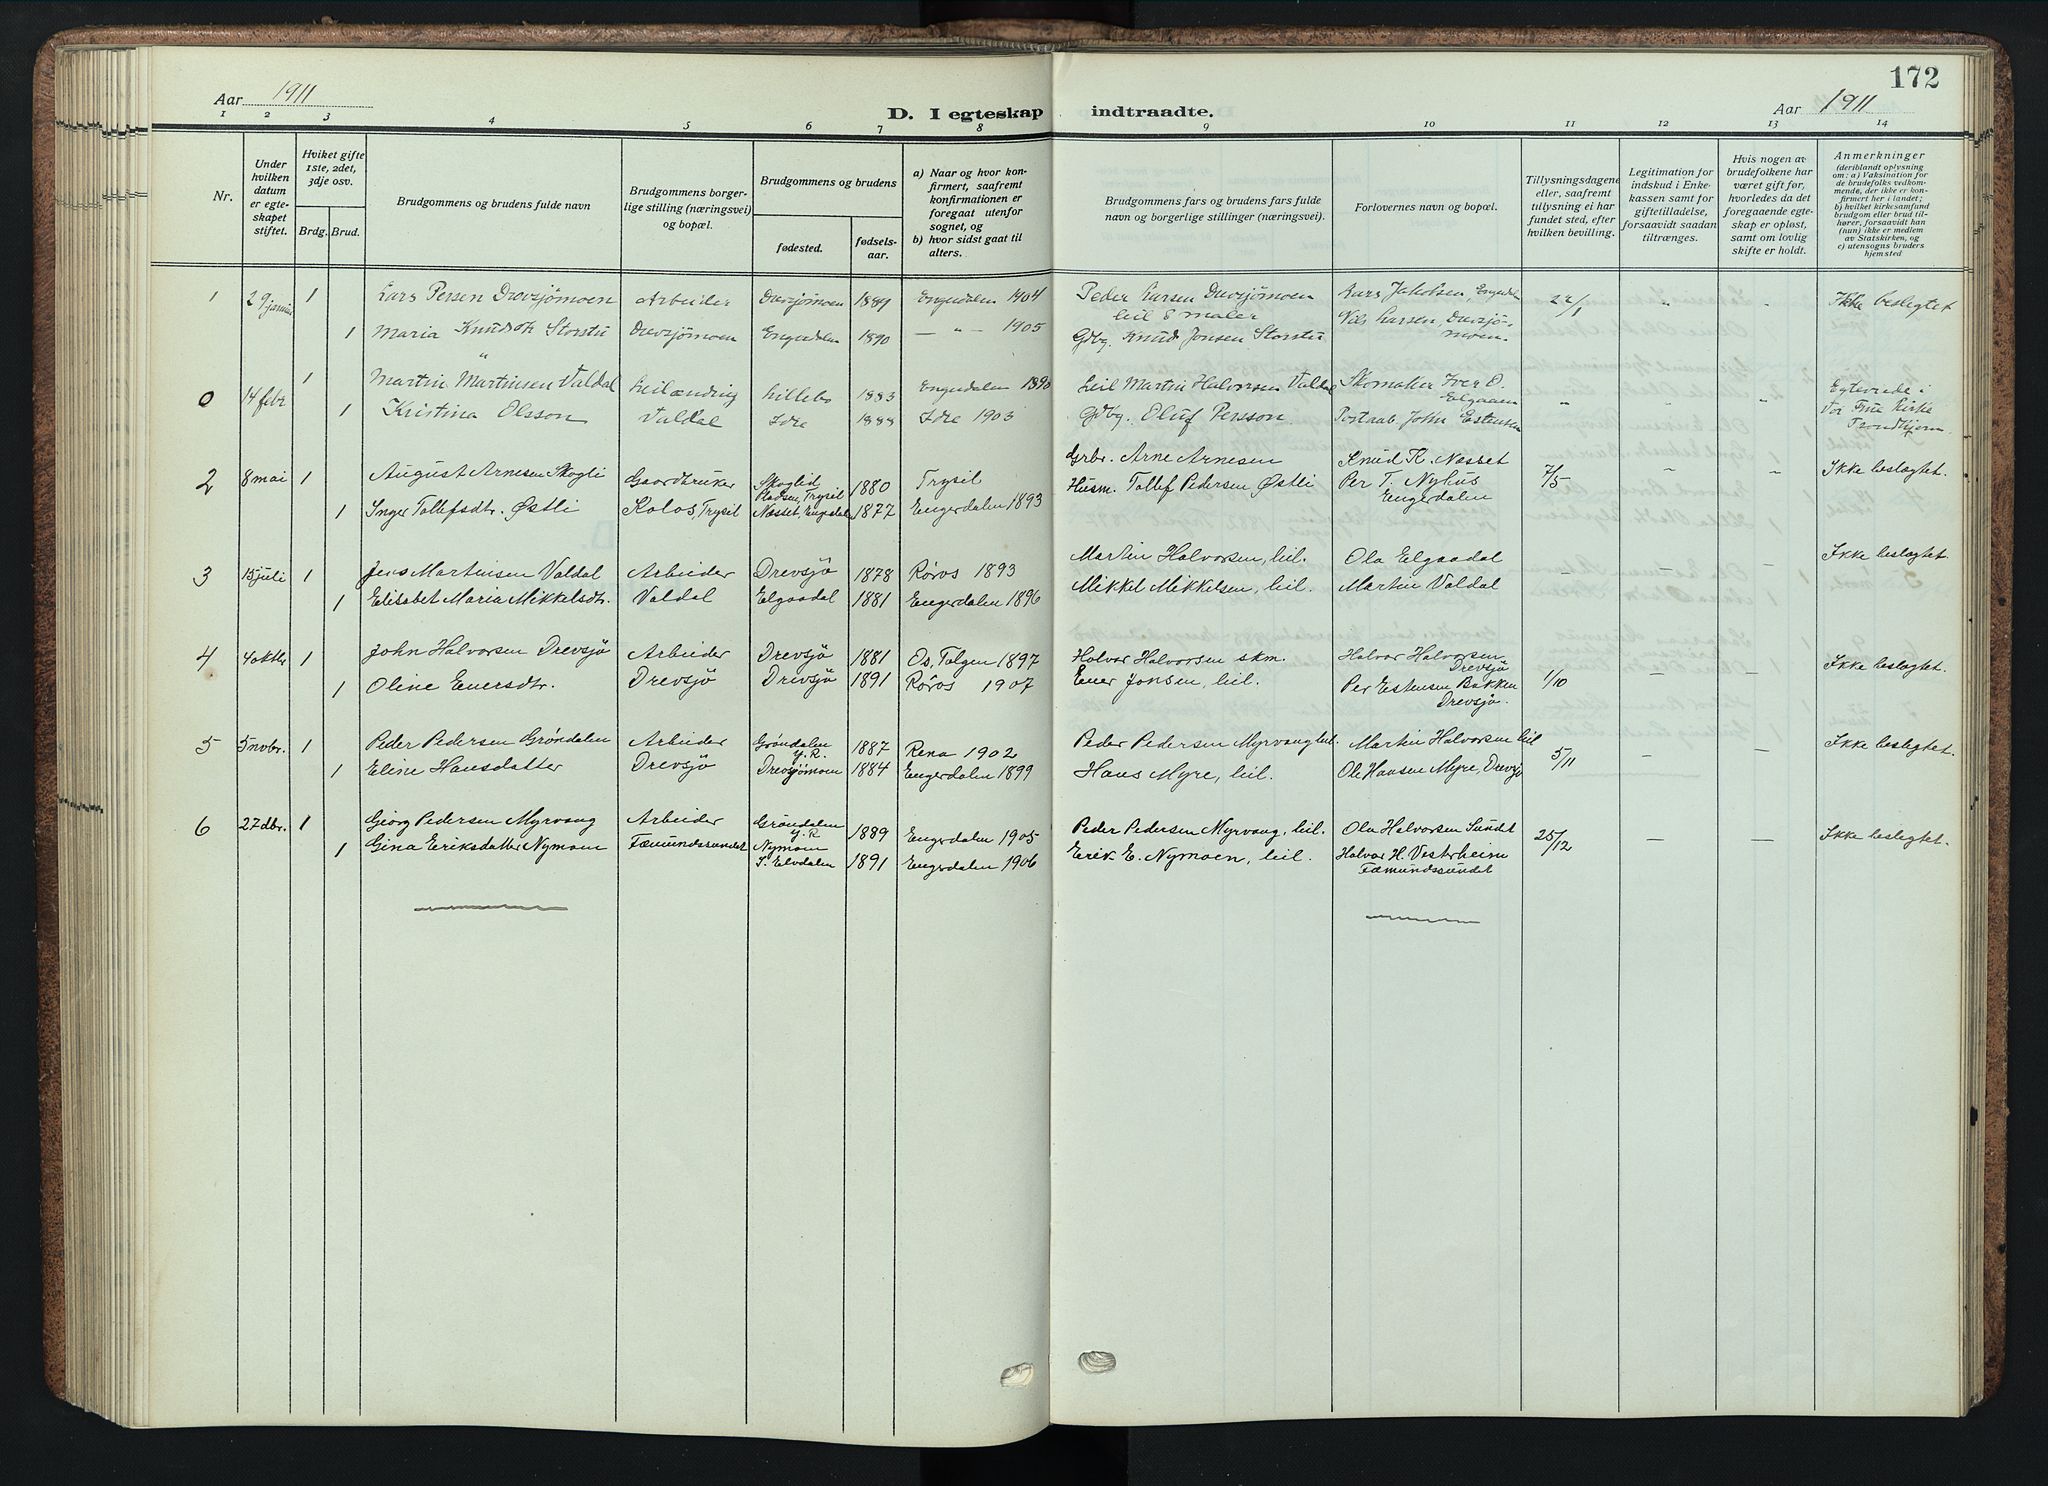 Aar 1911
172
D. I egteskap indtraadte.
Aar 1911
1 2 3 4 5 6 7 8 9 10 11 12 13 14
Nr.
Under hvilken datum er egteskapet stiftet.
Hviket gifte 1ste, 2det, 3dje osv.
Brdg. Brud.
Brudgommens og brudens fulde navn
Brudgommens borgerlige stilling (næringsvei) og bopæl.
Brudgommens og brudens
fødested.
fødselsaar.
a) Naar og hvor konfirmert, saafremt konfirmationen er foregaat utenfor sognet, og
b) hvor sidst gaat til alters.
Brudgommens fars og brudens fars fulde navn og borgerlige stillinger (næringsvei).
Forlovernes navn og bopæl.
Tillysningsdagene eller, saafremt tillysning ei har fundet sted, efter hvilken bevilling.
Legitimation for indskud i Enkekassen samt for giftetilladelse, forsaavidt saadan tiltrænges.
Hvis nogen av brudefolkene har været gift før, hvorledes da det foregaaende egteskap er opløst, samt om lovlig skifte er holdt.
Anmerkninger
(deriblandt oplysning om: a) Vaksination for de brudefolks vedkommende, der ikke er konfirmert her i landet; b) hvilket kirkesamfund brudgom eller brud tilhører, forsaavidt han (hun) ikke er medlem av Statskirken, og c) utensogns bruders hjemsted
1 29 januar 1 Lars Persen Drevsjömoen Arbeider Drevsjömoen 1889 Engerdalen 1904 Peder Larsen Drevsjömoen Lars Jakobsen, Engerdalen 22/1 " " Ikke beslegtet
leil & maler Nils Larsen, Drevsjö-
1 Maria Knudsdt. Storstu Drevsjömoen Engerdalen 1890 — " — 1905 Gdbg. Knud Jonsen Storstu moen.
0 14 febr 1 Martin Martinsen Valdal Leilænding Lillebo 1883 Engerdalen 1890 Leil Martin Halvorsen Valdal Skomaker Iver O. Elgaaen " " " Egteviede i
1 Kristina Olsson Valdal Idre 1888 Idre 1903 Gdbg. Oluf Persson Postaab. John Estensen Vor Frue Kirke
Trondhjem.
2 8 mai 1 August Arnesen Skogli Gaardbruker Skoglid 1880 Trysil Grbr. Arne Arnesen Knud K. Næsset 7/5 " " Ikke beslegtet.
Pladsen, Trysil Husm. Tollef Pedersen Østli Per T. Nyhus
1 Inger Tollefsdtr. Østli Kolos, Trysil Næsset, Engerdalen 1877 Engerdalen 1893 Engerdalen
3 15 juli 1 Jens Martinsen Valdal Arbeider Drevsjö 1878 Røros 1893 Martin Halvorsen, leil. Ola Elgaadal — — — Ikke beslegtet.
1 Elisabet Maria Mikkelsdtr. Valdal Elgaadal 1881 Engerdalen 1896 Mikkel Mikkelsen, leil. Martin Valdal
4 4 oktbr 1 John Halvorsen Drevsjö Arbeider Drevsjö 1881 Os, Tolgen 1897 Halvor Halvorsen skm. Halvor Halvorsen Drevsjö 1/10 — — Ikke beslegtet.
1 Oline Enersdtr. Drevsjö Drevsjö 1891 Røros 1907 Ener Jonsen, leil. Per Estensen Bakken
Drevsjö.
5 5 novbr. 1 Peder Pedersen Gröndalen Arbeider Gröndalen Y. R. 1887 Rena 1902 Peder Pedersen Myrvang leil. Martin Halvorsen leil 5/11 — — Ikke beslegtet.
1 Eline Hansdatter Drevsjö Drevsjömoen 1884 Engerdalen 1899 Hans Myre, leil. Ole Hansen Myre, Drevsjö
6 27 dbr. 1 Georg Pedersen Myrvang Arbeider Gröndalen Y. R 1889 Engerdalen 1905 Peder Pedersen Myrvang, leil. Ola Halvorsen Sundet 25/12 — — Ikke beslegtet.
1 Gina Eriksdatter Nymoen Fæmundssundet Nymoen S. Elvdalen 1891 Engerdalen 1906 Erik E. Nymoen, leil. Halvor H. Vestrheim
Fæmundssundet